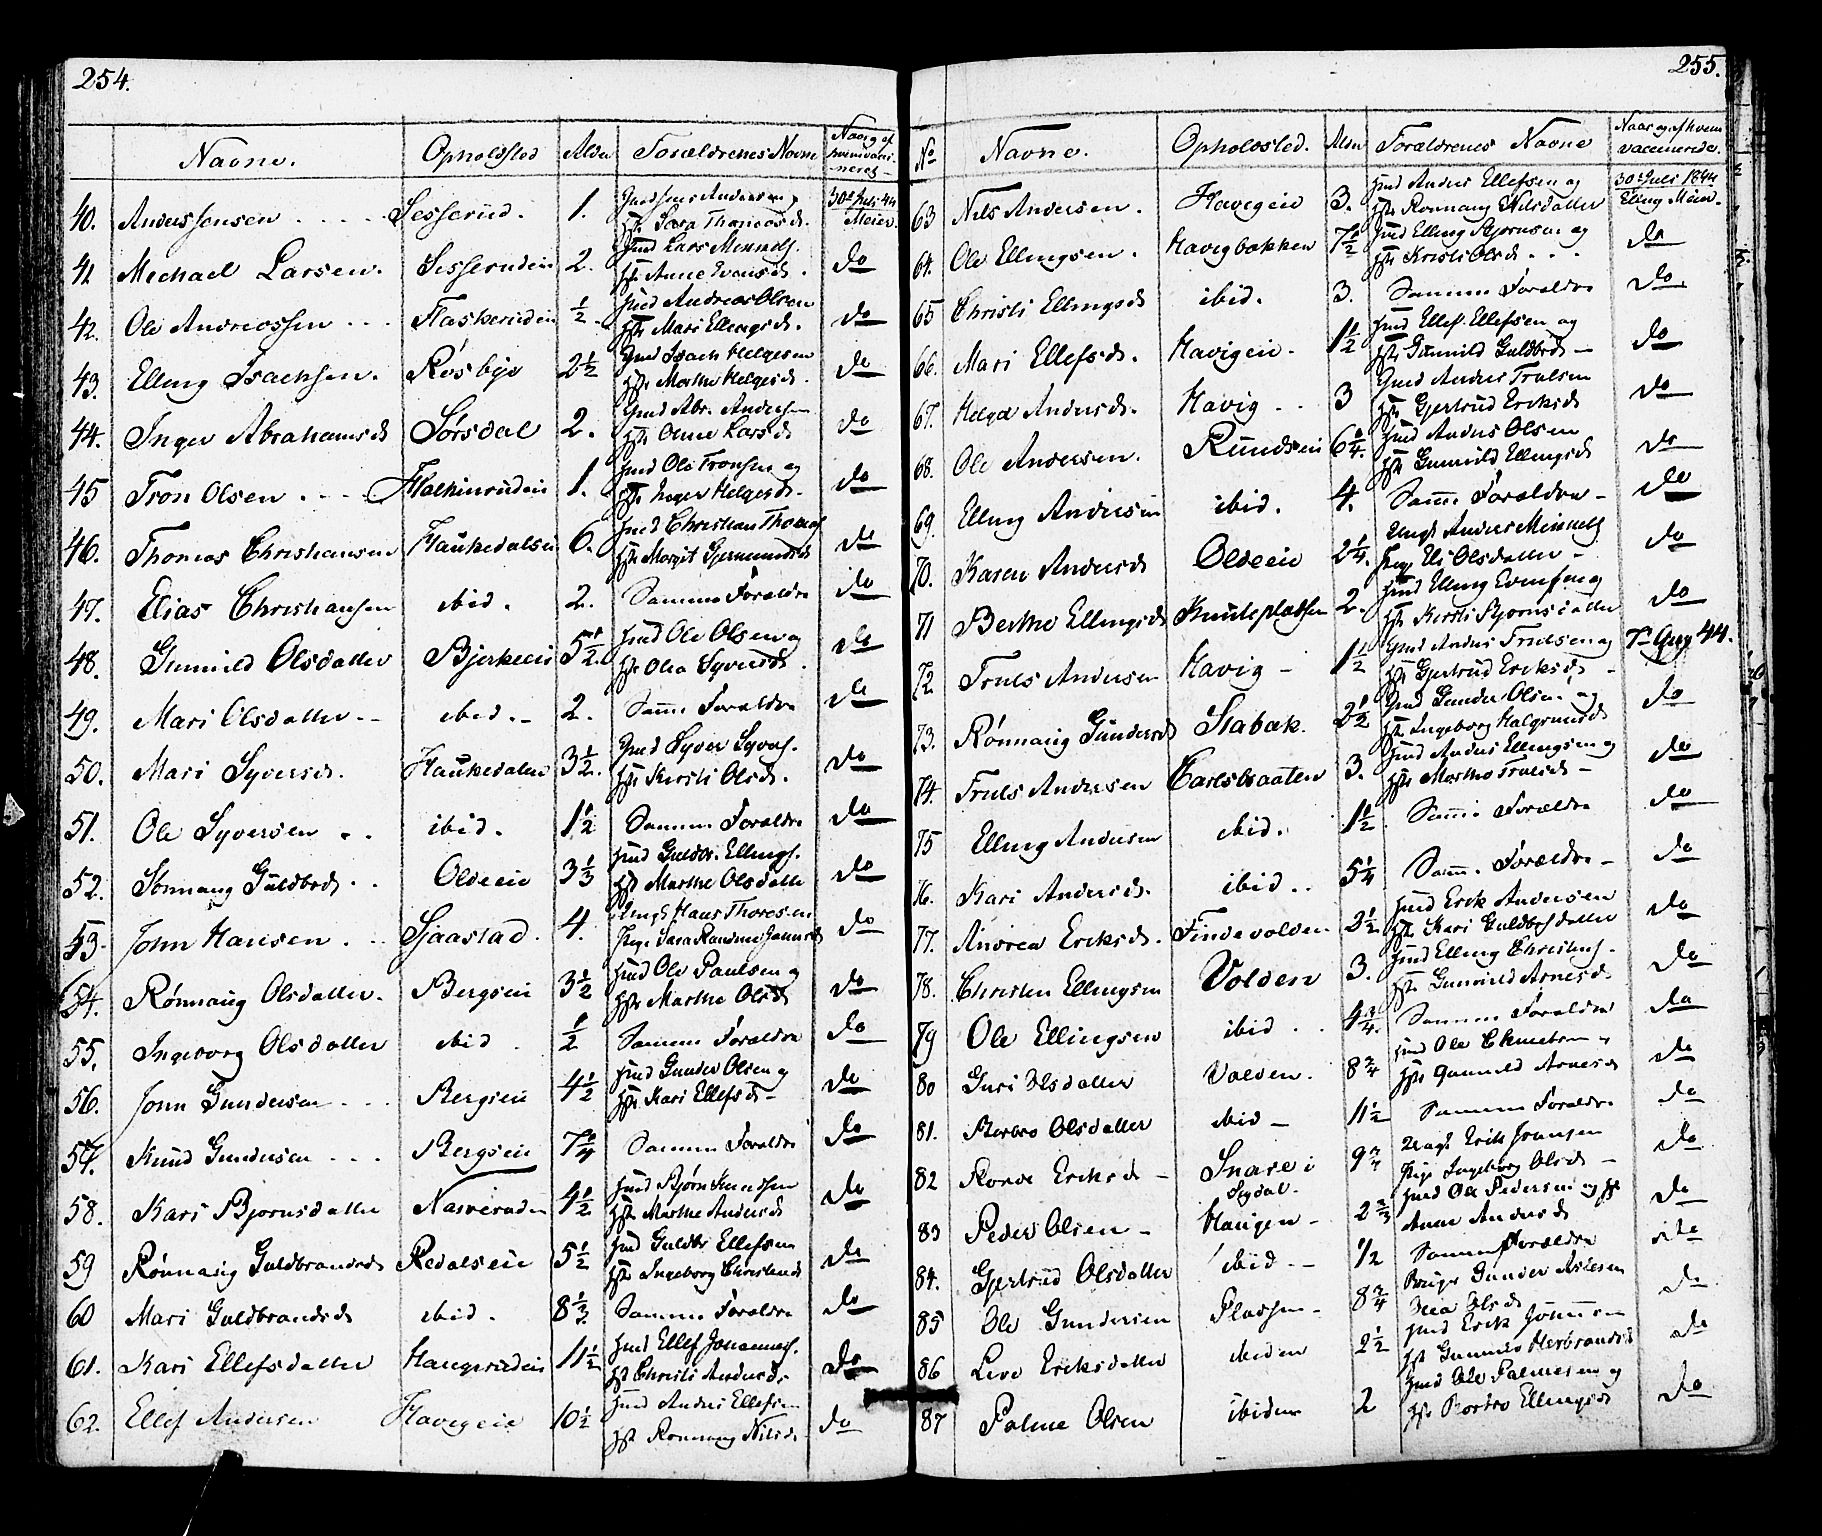 254.
Navne. Opholdsted Alder Forældrenes Navne Naar og af hvem vacci-
neret
40. Anders Jensen Sesserud. 1. Gmd Jens Andersen og 30te Juli 44
Hst. Sara Thomasd. Meier.
41 Mechael Larsen. Sesserudeie 2. Hmd Lars Mennels. do
Hst. Anne Evansd.
42. Ole Andreassen Flaskerudeie ½. Hmd Andreas Olsen do
Hst. Mari Ellingsd.
43. Elling Isachsen. Rósbye 2½ Gmd Isach Helgesen do
Hst. Marthe Helgesd.
44. Inger Abrahamsd Sörsdal 2. Gmd Abr. Andersen do
Hst. Anne Larsd
45 Tron Olsen Flalkinrudeie 1. Hmd Ole Tronsen og do
Hst. Inger Helgesd.
46. Thomas Christiansen Haukedalseie 6. Hmd Christian Thomas. do
Hst. Margit Gjermundsd
47. Elias Christiansen ibid. 2. Samme Foraldre do
48. Gunnild Olsdatter Bjerkeeie 5½. Hmd Ole Olsen og do
Hst. Olea Syversd.
49. Mari Olsdatter ibid. 2. Samme Foraldre do
50. Mari Syversd. Haukedalen 3½. Gmd Syver Syvers. do
Hst. Kersti Olsd.
51. Ole Syversen ibid. 1½ Samme Foraldre do
52. Rönnaug Guldbrd. Oldeeie 3⅓ Hmd Guldbr. Ellings. do
Hst. Marthe Olsdatte
53. John Hansen Sjaastad. 4. Ungk. Hans Thoresen do
Pige Sara Randine Jansd
54. Rønnaug Olsdatter. Bergseie 3½ Hmd Ole Paulsen og do
Hst. Marthe Olsd
55. Ingeborg Olsdatter ibid ½ Samme Foraldre do
56. John Gundersen Bergseie 4½ Hmd Gunder Olsen og do
Hst. Kari Ellefsd
57. Knud Gundersen Bergseie 7¾ Samme Foraldre do
58. Kari Bjornsdatter Narveruden 4½ Hmd Bjørn Knudsen do
Hst. Marthe Andersd
59 Rønnaug Guldbrandsd Redalseie 5½ Hmd Guldbr Ellefsen do
Hst. Ingeborg Christensd
60 Mari Guldbrandsd ibid. 8⅓ Samme Foraldre do
61. Kari Ellefsdatter Haugerudeie 11½ Hmd Ellef Johannes. do
Hst Christi Andersd.
62. Ellef Andersen Havigeie 10½ Hmd Anders Ellefsen do
Hst. Ronnaug Nilsd.
255.
No Navne. Opholdsted. Alder Forældrenes Navne Naar og af hvem
vaccinerede.
63 Nils Andersen. Havigeie 3. Hmd Anders Ellefsen og 30te Juli 1844
Hst. Ronnaug Nilsdatter Elling Meier.
64. Ole Ellingsen. Havigbakken 7½ Hmd Elling Bjornsen og do
Hst. Kristi Olsd
65 Christi Ellingsd ibid. 3. Samme Foraldre do
66. Mari Ellefsd. Havigeie. 1½ Hmd Ellef Ellefsen og do
Hst. Gunnild Guldbrd
67. Helga Andersd. Havig 3 Gmd Anders Trulsen do
Hst. Gjertrud Eriksd
68. Ole Andersen. Rundseie 6¾. Hmd Anders Olsen do
Hst. Gunnild Ellingsd
69. Elling Andersen ibid. 4. Samme Foraldre do
70. Karen Andersd Oldeeie 2¼. Ungk Anders Minnels do
Pige Eli Olsdatter
71 Berthe Ellingsd Knuteplatsen 2. Hmd Elling Evensen og do
Hst. Kersti Bjornsdatter
72. Truls Andersen Havig 1½ Gmd Anders Trulsen og 7de Aug 44.
Hst. Gjertrud Eriksd
73. Rønnaug Gundersd Stabæk. 2½ Gmd Gunder Olsen og do
Hst. Ingeborg Halgrimsd
74. Truls Andersen Carlsbraaten 3. Hmd Anders Ellingsen og do
Hst. Marthe Trulsd
75 Elling Andersen ibid. 1½ Samme Forældre do
76. Kari Andersd. ibid. 5¼ Samme Forældre do
77. Andrea Eriksd. Findevolden 2½ Hmd Erik Andersen do
Hst. Kari Guldbrsdatter
78. Christen Ellingsen Volden 3. Hmd Elling Christens. do
Hst. Gunnild Arnesd.
79 Ole Ellingsen ibid 4¾. Samme Foraldre do
80 Guri Olsdatter Volden. 8¾ Hmd Ole Christens og do
Hst. Gunnild Arnesd
81. Berbro Olsdatter ibid 11½ Samme Foraldre do
82 Eriksd Snare i 9¾ Ungk Erik Jonsen do
Sigdal. Pige Ingeborg Olsd
83 Peder Olsen Haugen 2⅔ Hmd Ole Pedersen og Hst do
Anne Andersd
84. Gjertrud Olsdatter ibid. ½ Samme Foraldre do
85 Ole Gundersen Plassen 8¾ Gunder Aslesen do
Olsd
86 Live Eriksdatter ibiden 2½ Hmd Erik do
Hst Gunnild Herbrandsd
87 Palme Olsen ibiden 2 Hmd Ole Palmesen og do
Hst. Barbro Ellingsd